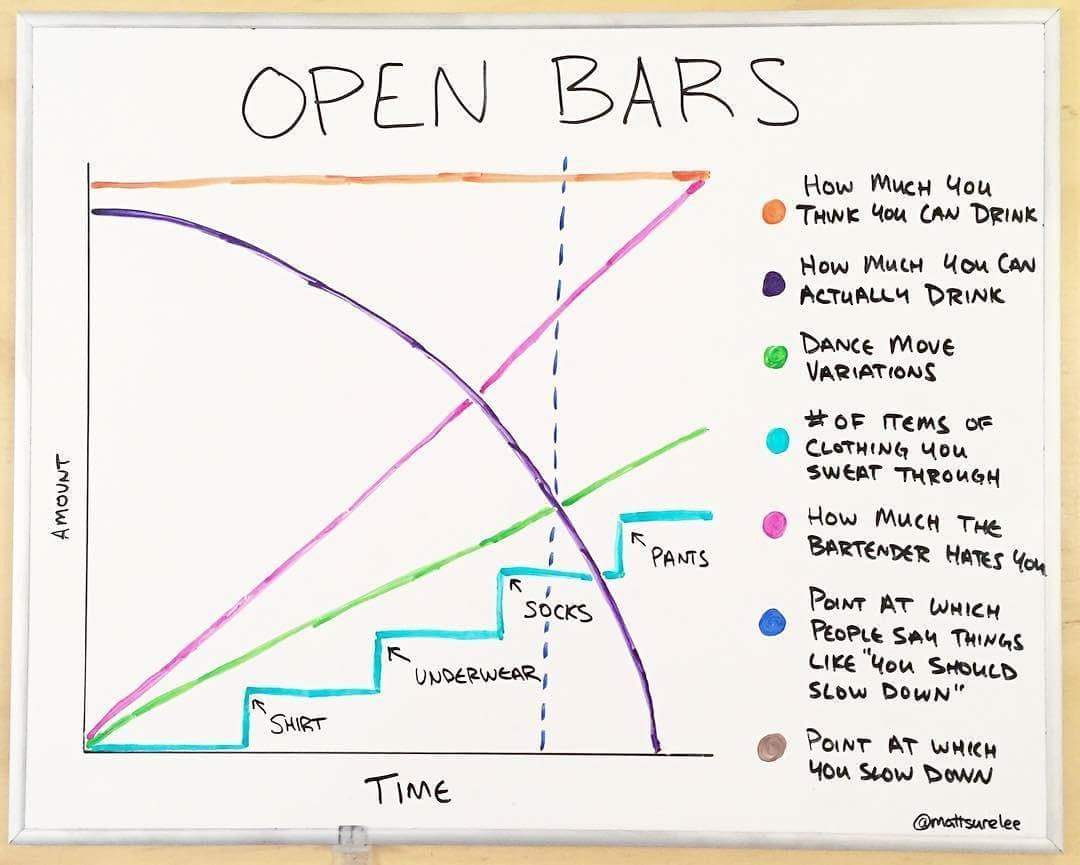 OPEN BARS
AMOUNT
TIME
SHIRT
UNDERWEAR
SOCKS
PANTS
HOW MUCH YOU
THINK YOU CAN DRINK
HOW MUCH YOU CAN
ACTUALLY DRINK
DANCE MOVE
VARIATIONS
# OF ITEMS OF
CLOTHING YOU
SWEAT THROUGH
HOW MUCH THE
BARTENDER HATES YOU
POINT AT WHICH
PEOPLE SAY THINGS
LIKE "YOU SHOULD
SLOW DOWN"
POINT AT WHICH
YOU SLOW DOWN
@mattsurelee